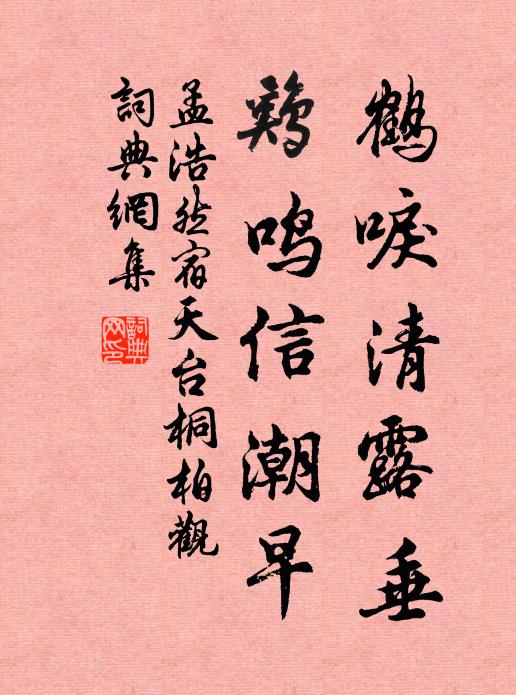 鶴唳清露垂
鷄鳴信潮早
孟浩然宿天台桐柏觀
詞典網集
詞典網印